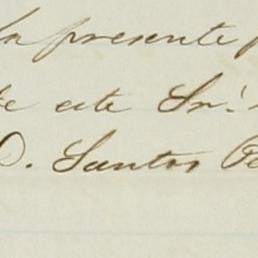 la presente
este Sr.
D. Santos Pe